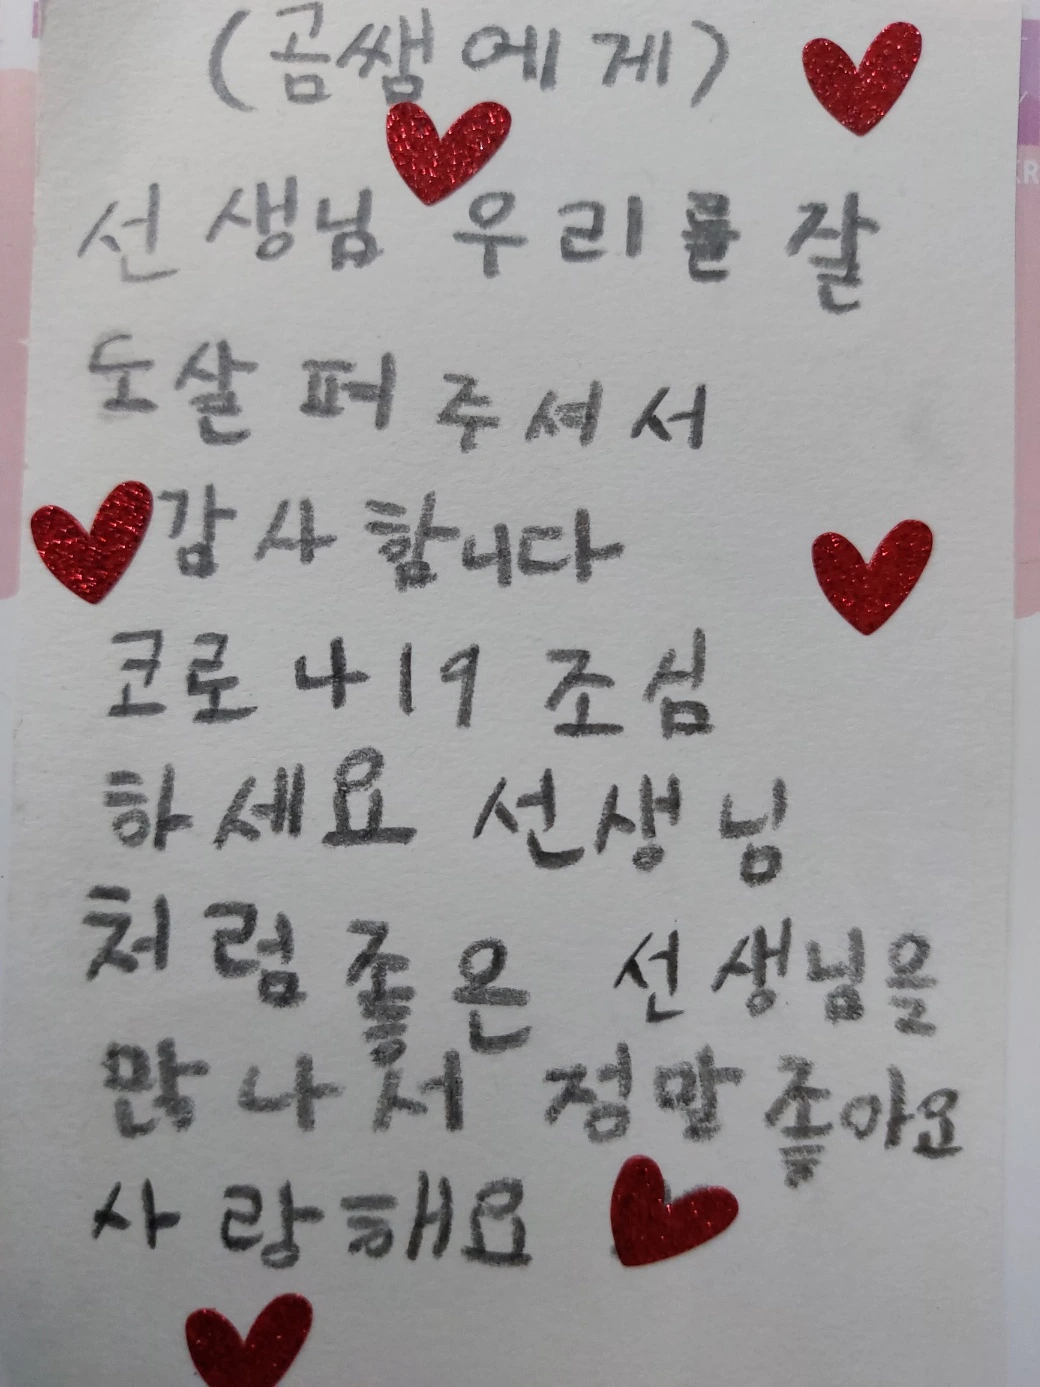 (곰쌤에게)
선생님 우리를 잘
도살펴 주셔서
감사합니다
코로나19 조심
하세요 선생님
처럼좋은 선생님을
많나서 정말좋아요
사랑해요